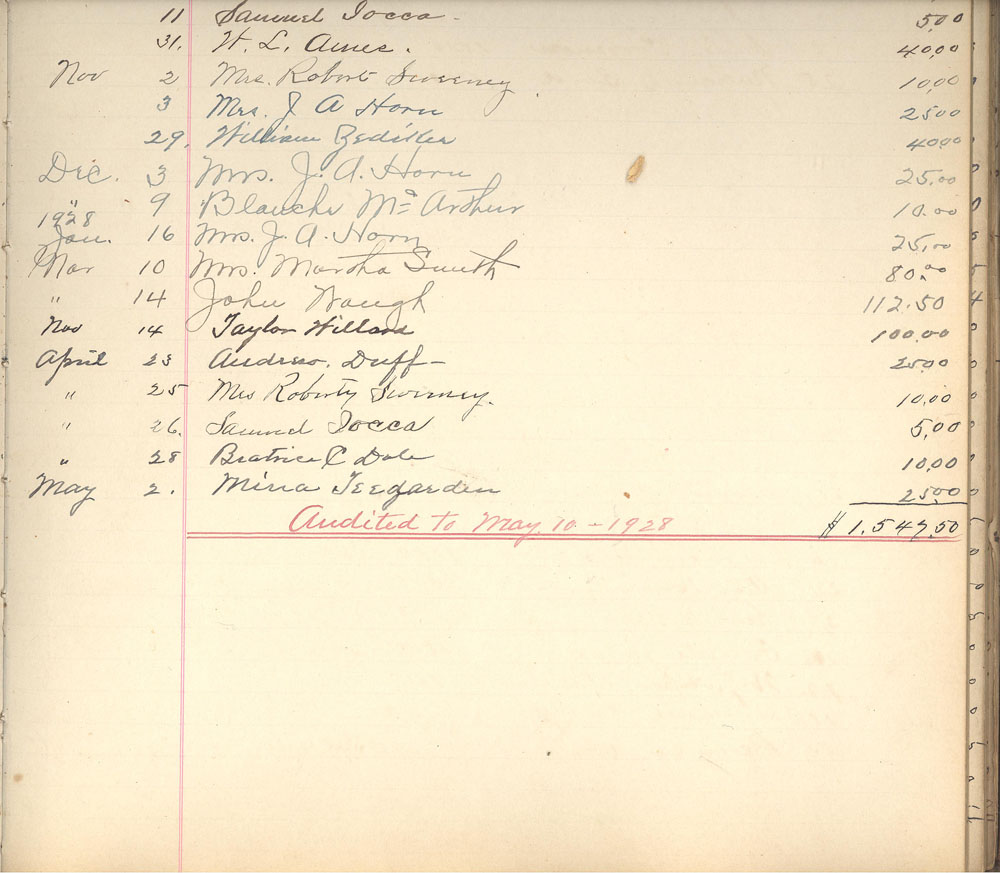 11 Samuel Tocca. 5,00
31. W. L. Ames. 40,00
Nov 2 Mrs. Robert Sweeney 10,00
3 Mrs. J A Horn 2500
29, William Zediker 4000
Dec. 3 Mrs. J. A. Horn 25.00
" 9 Blanche Mc Arthur 10.00
1928
Jan. 16 Mrs. J. A. Horn 25,00
Mar 10 Mrs. Martha Smith 80.00
" 14 John Waugh 112.50
Nov 14 Taylor Willard 100.00
April 23 Andrew. Duff— 2500
" 25 Mrs Roberty Sweeney. 10,00
" 26. Samuel Tocca 5,00
" 28 Beatrice C Dale 10,00
May 2. Mina Teegarden 25,00
Audited to May 10 - 1928 $ 1.547.50